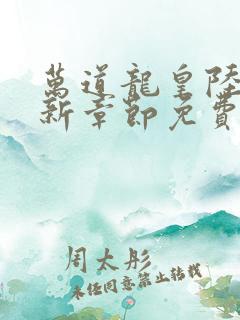 萬道龍皇陸
新章節免費
周太彤
未经同意禁止转载